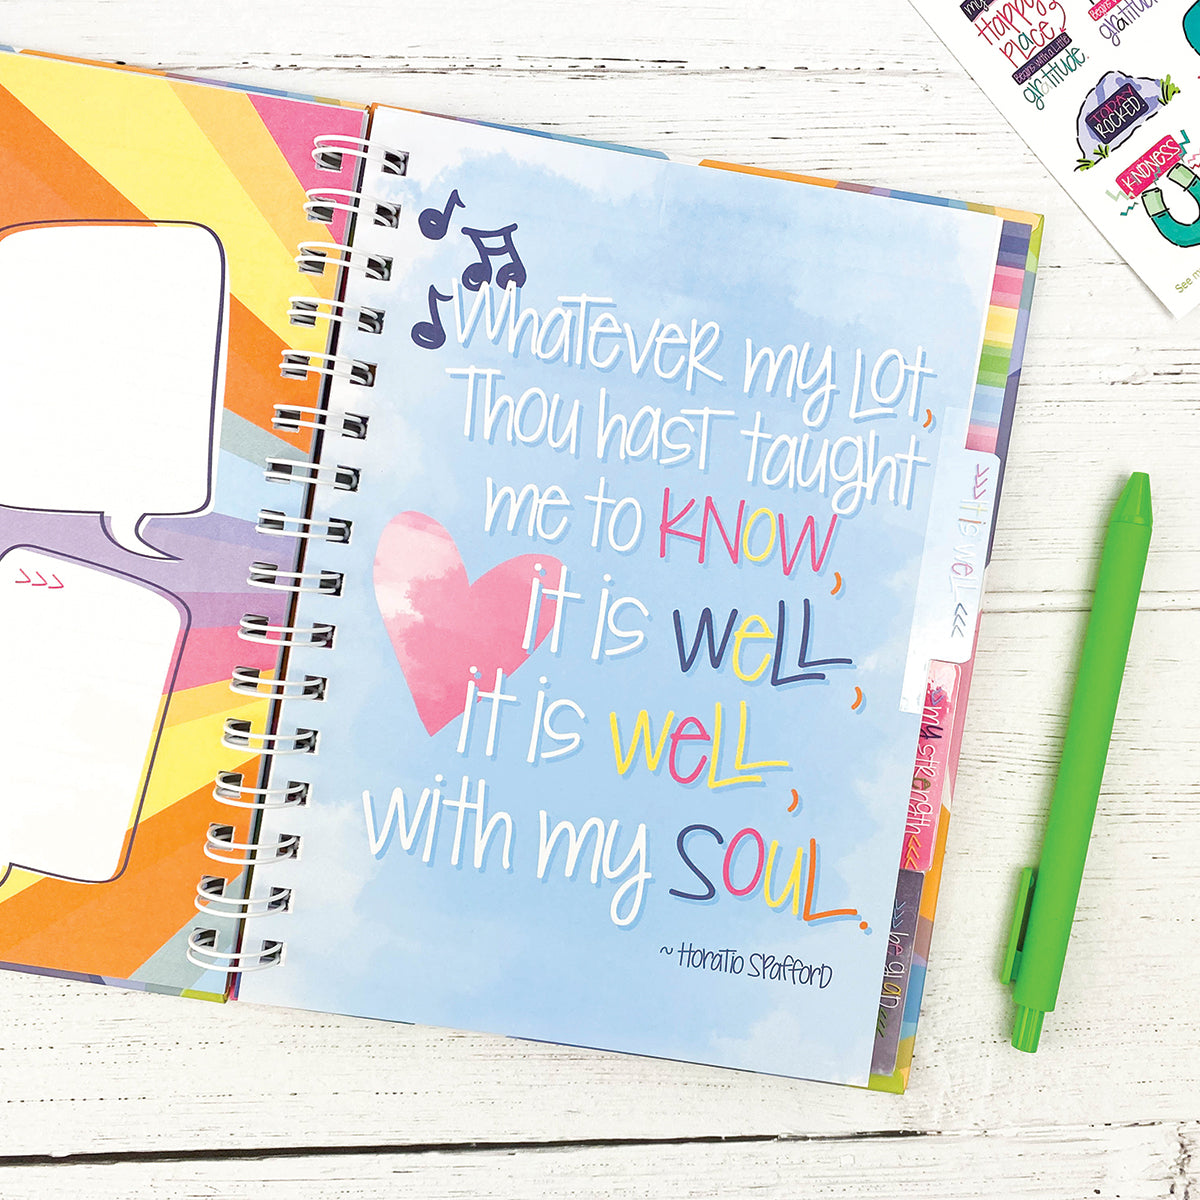 Whatever my lot,
Thou hast taught
me to KNOW,
it is well,
it is well,
with my soul.
~ Horatio Spafford
>>> it is well <<<
my strength <<<
>>> be glad <<<
>>>
my
Happy
Place
Begins with a little
gratitude.
Begins with a little
gratitude
TODAY
ROCKED!
KINDNESS
See m